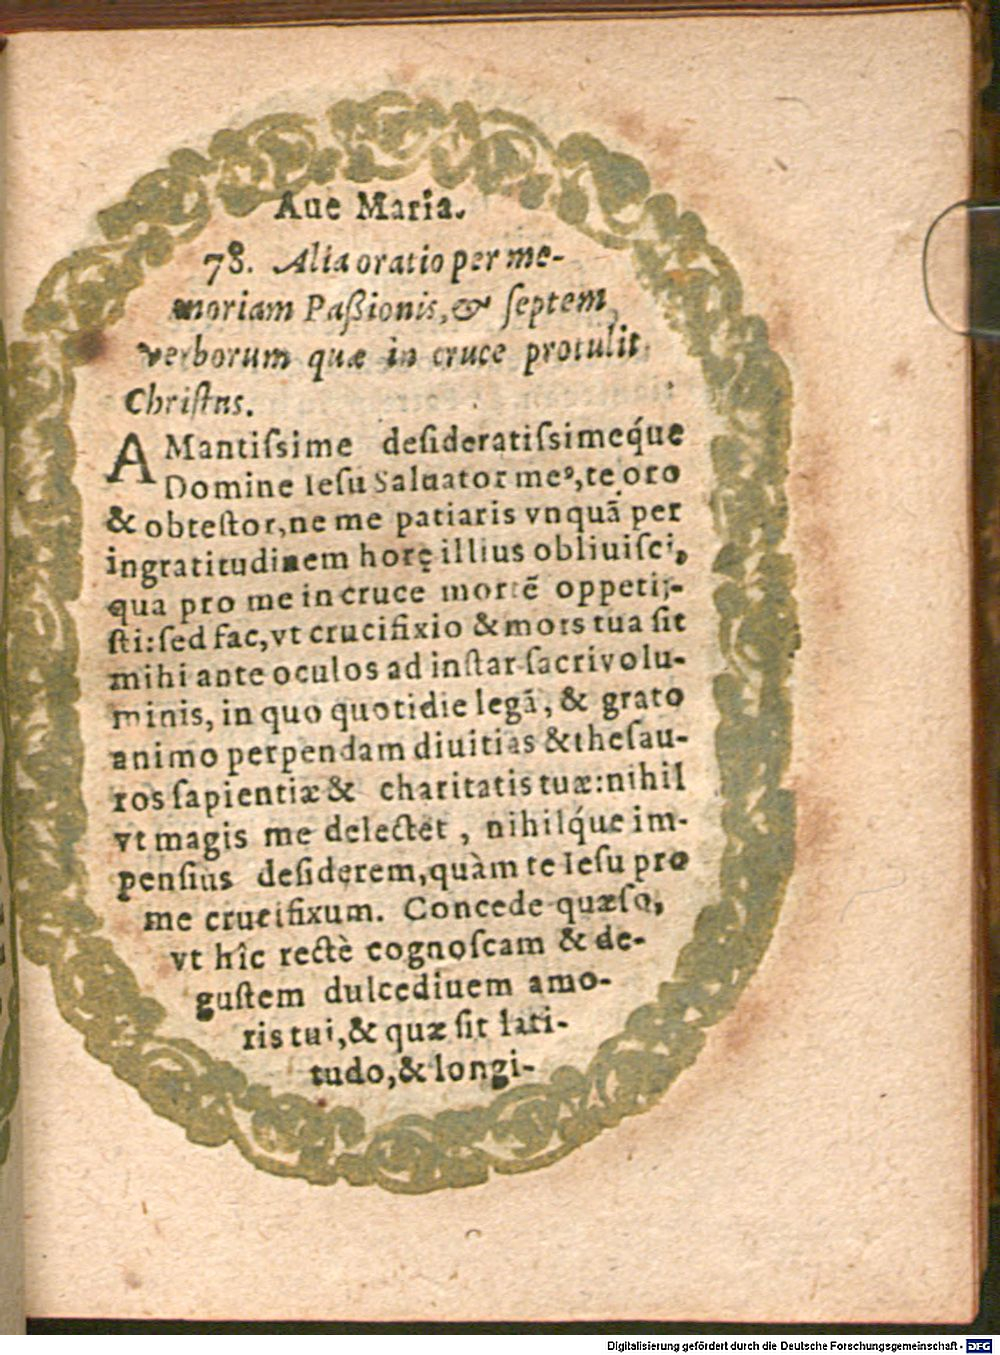 Aue Maria.
78. Alia oratio per me-
moriam Paßionis, & ſeptem
verborum quæ in cruce protulit
Chriſtus.
AMantiſsime deſideratiſsimeq́ue
Domine Ieſu Saluator meꝰ, te oro
& obteſtor, ne me patiaris vnquā per
ingratitudinem horę illius obliuiſci,
qua pro me in cruce mortē oppetij-
ſti: ſed fac, vt crucifixio & mors tua ſit
mihi ante oculos ad inſtar ſacri volu-
minis, in quo quotidie legā, & grato
animo perpendam diuitias & theſau-
ros ſapientiæ & charitatis tuæ: nihil
vt magis me delectet, nihilq́ue im-
penſius deſiderem, quàm te Ieſu pro
me crucifixum. Concede quæſo,
vt hîc rectè cognoſcam & de-
guſtem dulcediuem amo-
ris tui, & quæ ſit lati-
tudo, & longi-
Digitalisierung gefördert durch die Deutsche Forschungsgemeinschaft - DFG